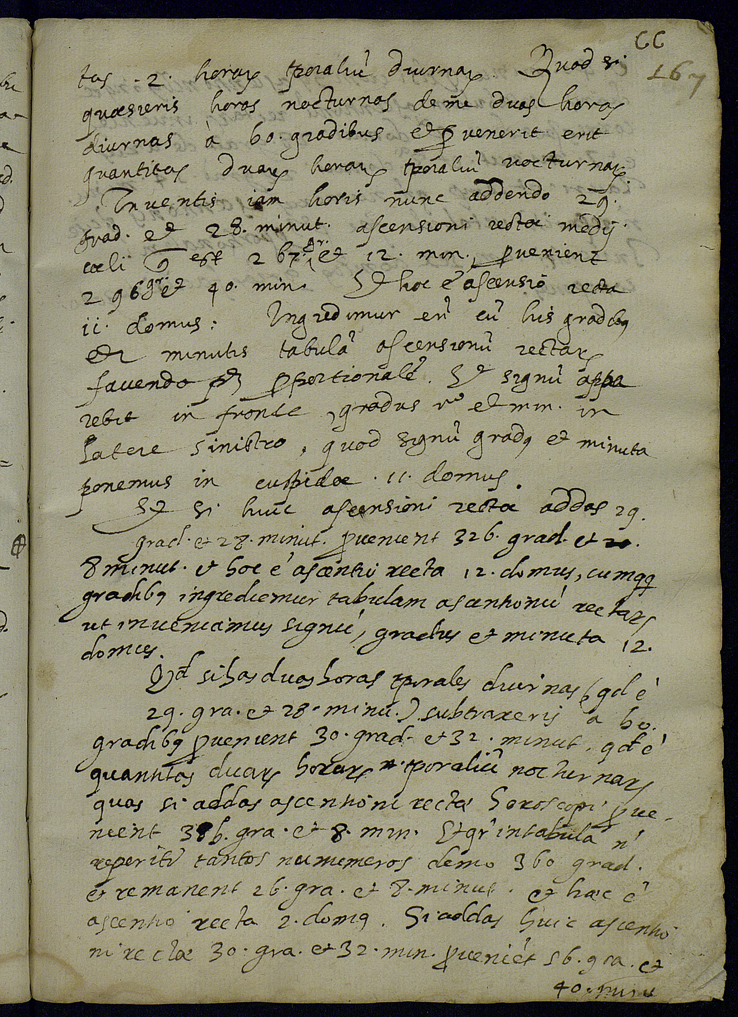 CC
167
tas .2. horarū tp̄oraliū diurnarū. Quod si
quæsieris horas nocturnas deme duas horas
diurnas à 60. gradibus et ꝓvenerit erit
quantitas duarū horarū tp̄oraliū nocturnarū
Inventis iam horis nunc addendo 29.
grad. et 28. minut. ascensioni rectæ medij
cœli q̄ est 267 gr. et 12. min., ꝓvenient
296 gr. et 40. min. Et hoc ē ascensio recta
11. domus: Ingredimur en̄ cū his gradibꝰ
et minutis tabulā ascensionū rectarū
favendo ꝓportionalē. Et signū appa
rebit in fronte, gradus vº et min. in
latere sinistro, quod signū gradꝰ et minuta
ponemus in cuspide .11. domus.
Et si huic ascensioni rectæ addas 29.
grad. et 28. minut. ꝓvenient 326. grad. et
8 minut. et hoc ē ascentio recta 12. domus, cumqꝫ
gradibꝰ ingrediemur tabulam ascentionū rectarū
ut inveniamus signū, gradus et minuta 12.
domus.
Qd si has duas horas tp̄orales diurnas (qd ē
29. gra. et 28. minu.) subtraxeris à 60.
gradibꝰ ꝓvenient 30. grad. et 32. minut. qd ē
quantitas duarū horarū tp̄oraliū nocturnarū
quas si addas ascentioni rectæ horoscopi ꝓve-
nient 386. gra. et 8. min. Et qr̄ in tabula n̄
reperitr̄ tantos numemeros demo 360 grad.
et remanent 26. gra. et 8. minut. et hæc ē
ascentio recta 2. domꝰ. Si addas huic ascentio
ni rectæ 30. gra. et 32. min. ꝓveniēt 56. gra. et
40. minu